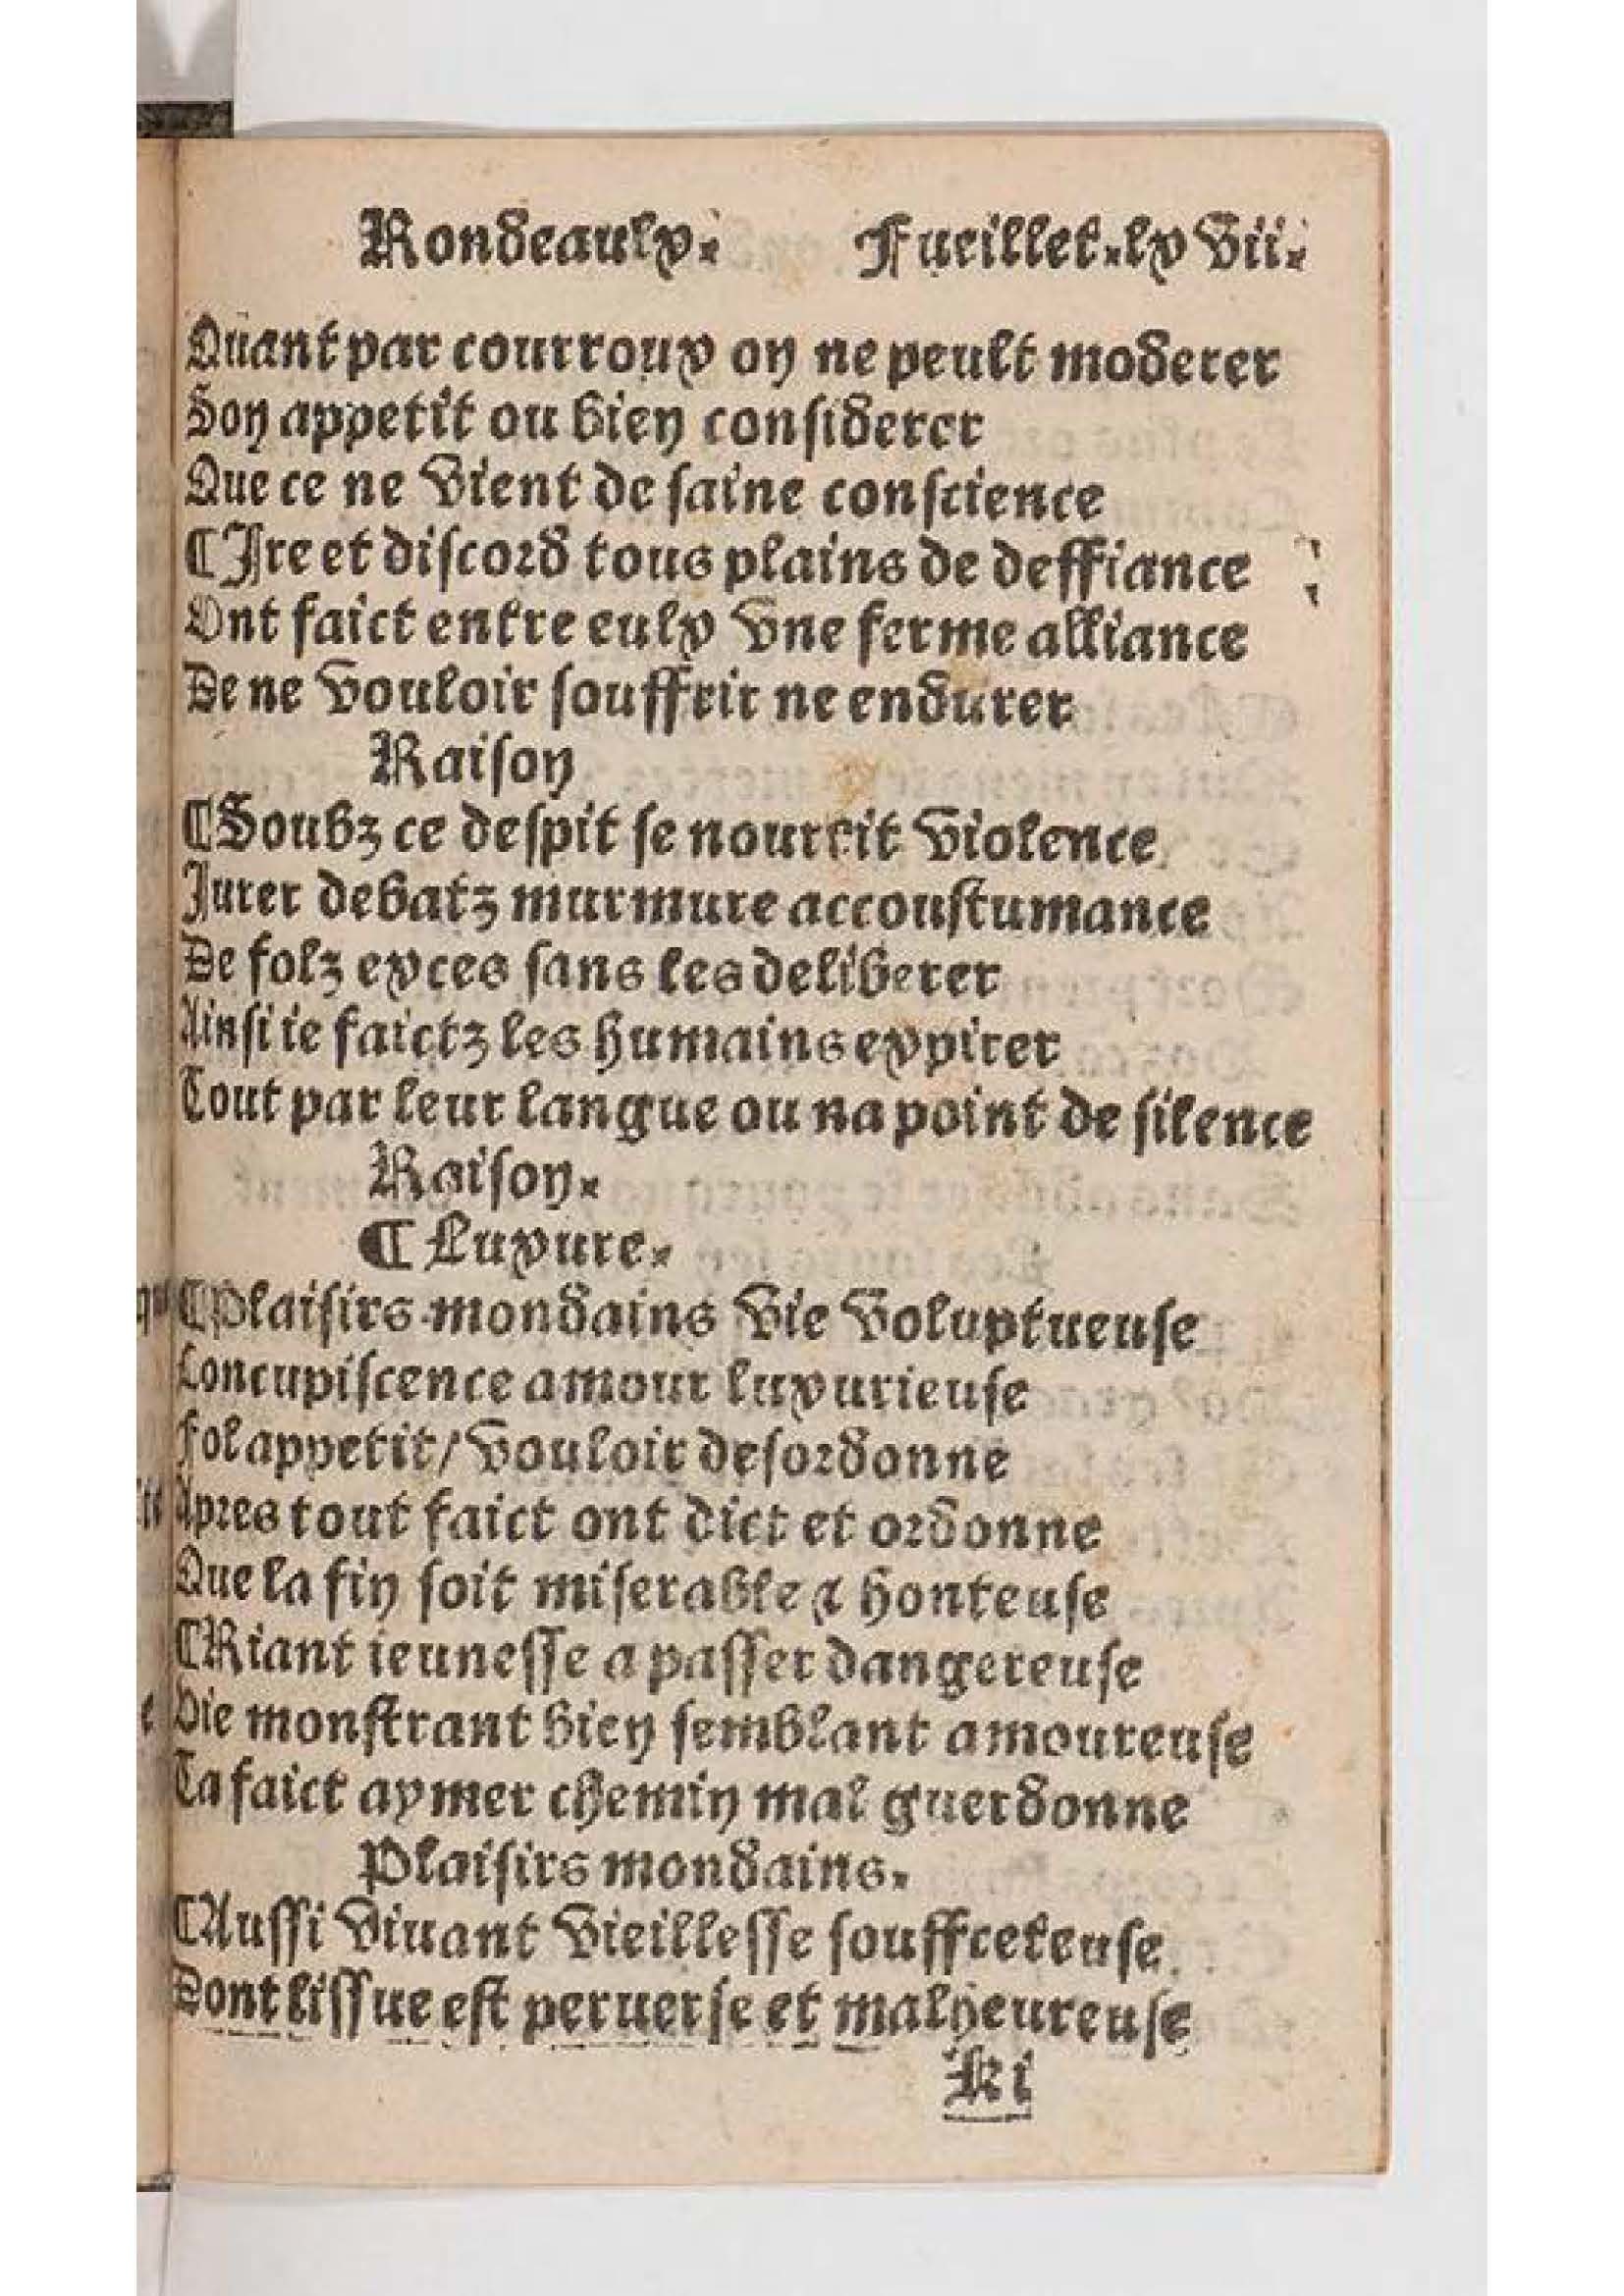 Rondeaulx. Fueillet.lxvii.
Quant par courroux on ne peult moderer
Son appetit ou bien considerer
Que ce ne vient de saine conscience
¶Ire et discord tous plains de deffiance
Ont faict entre eulx vne ferme alliance
De ne vouloir souffrir ne endurer
Raison
¶Soubz ce despit se nourrit violence
Jurer debatz murmure accoustumance
De folz exces sans les deliberer
Ainsi ie faictz les humains expirer
Tout par leur langue ou na point de silence
Raison.
¶Luxure.
¶Plaisirs mondains vie voluptueuse
Concupiscence amour luxurieuse
Fol appetit/vouloir desordonne
Apres tout faict ont dict et ordonne
Que la fin soit miserable & honteuse
¶Riant ieunesse a passer dangereuse
Vie monstrant bien semblant amoureuse
Ta faict aymer chemin mal guerdonne
Plaisirs mondains.
¶Aussi viuant vieillesse souffreteuse
Dont lissue est peruerse et malheureuse
Ki